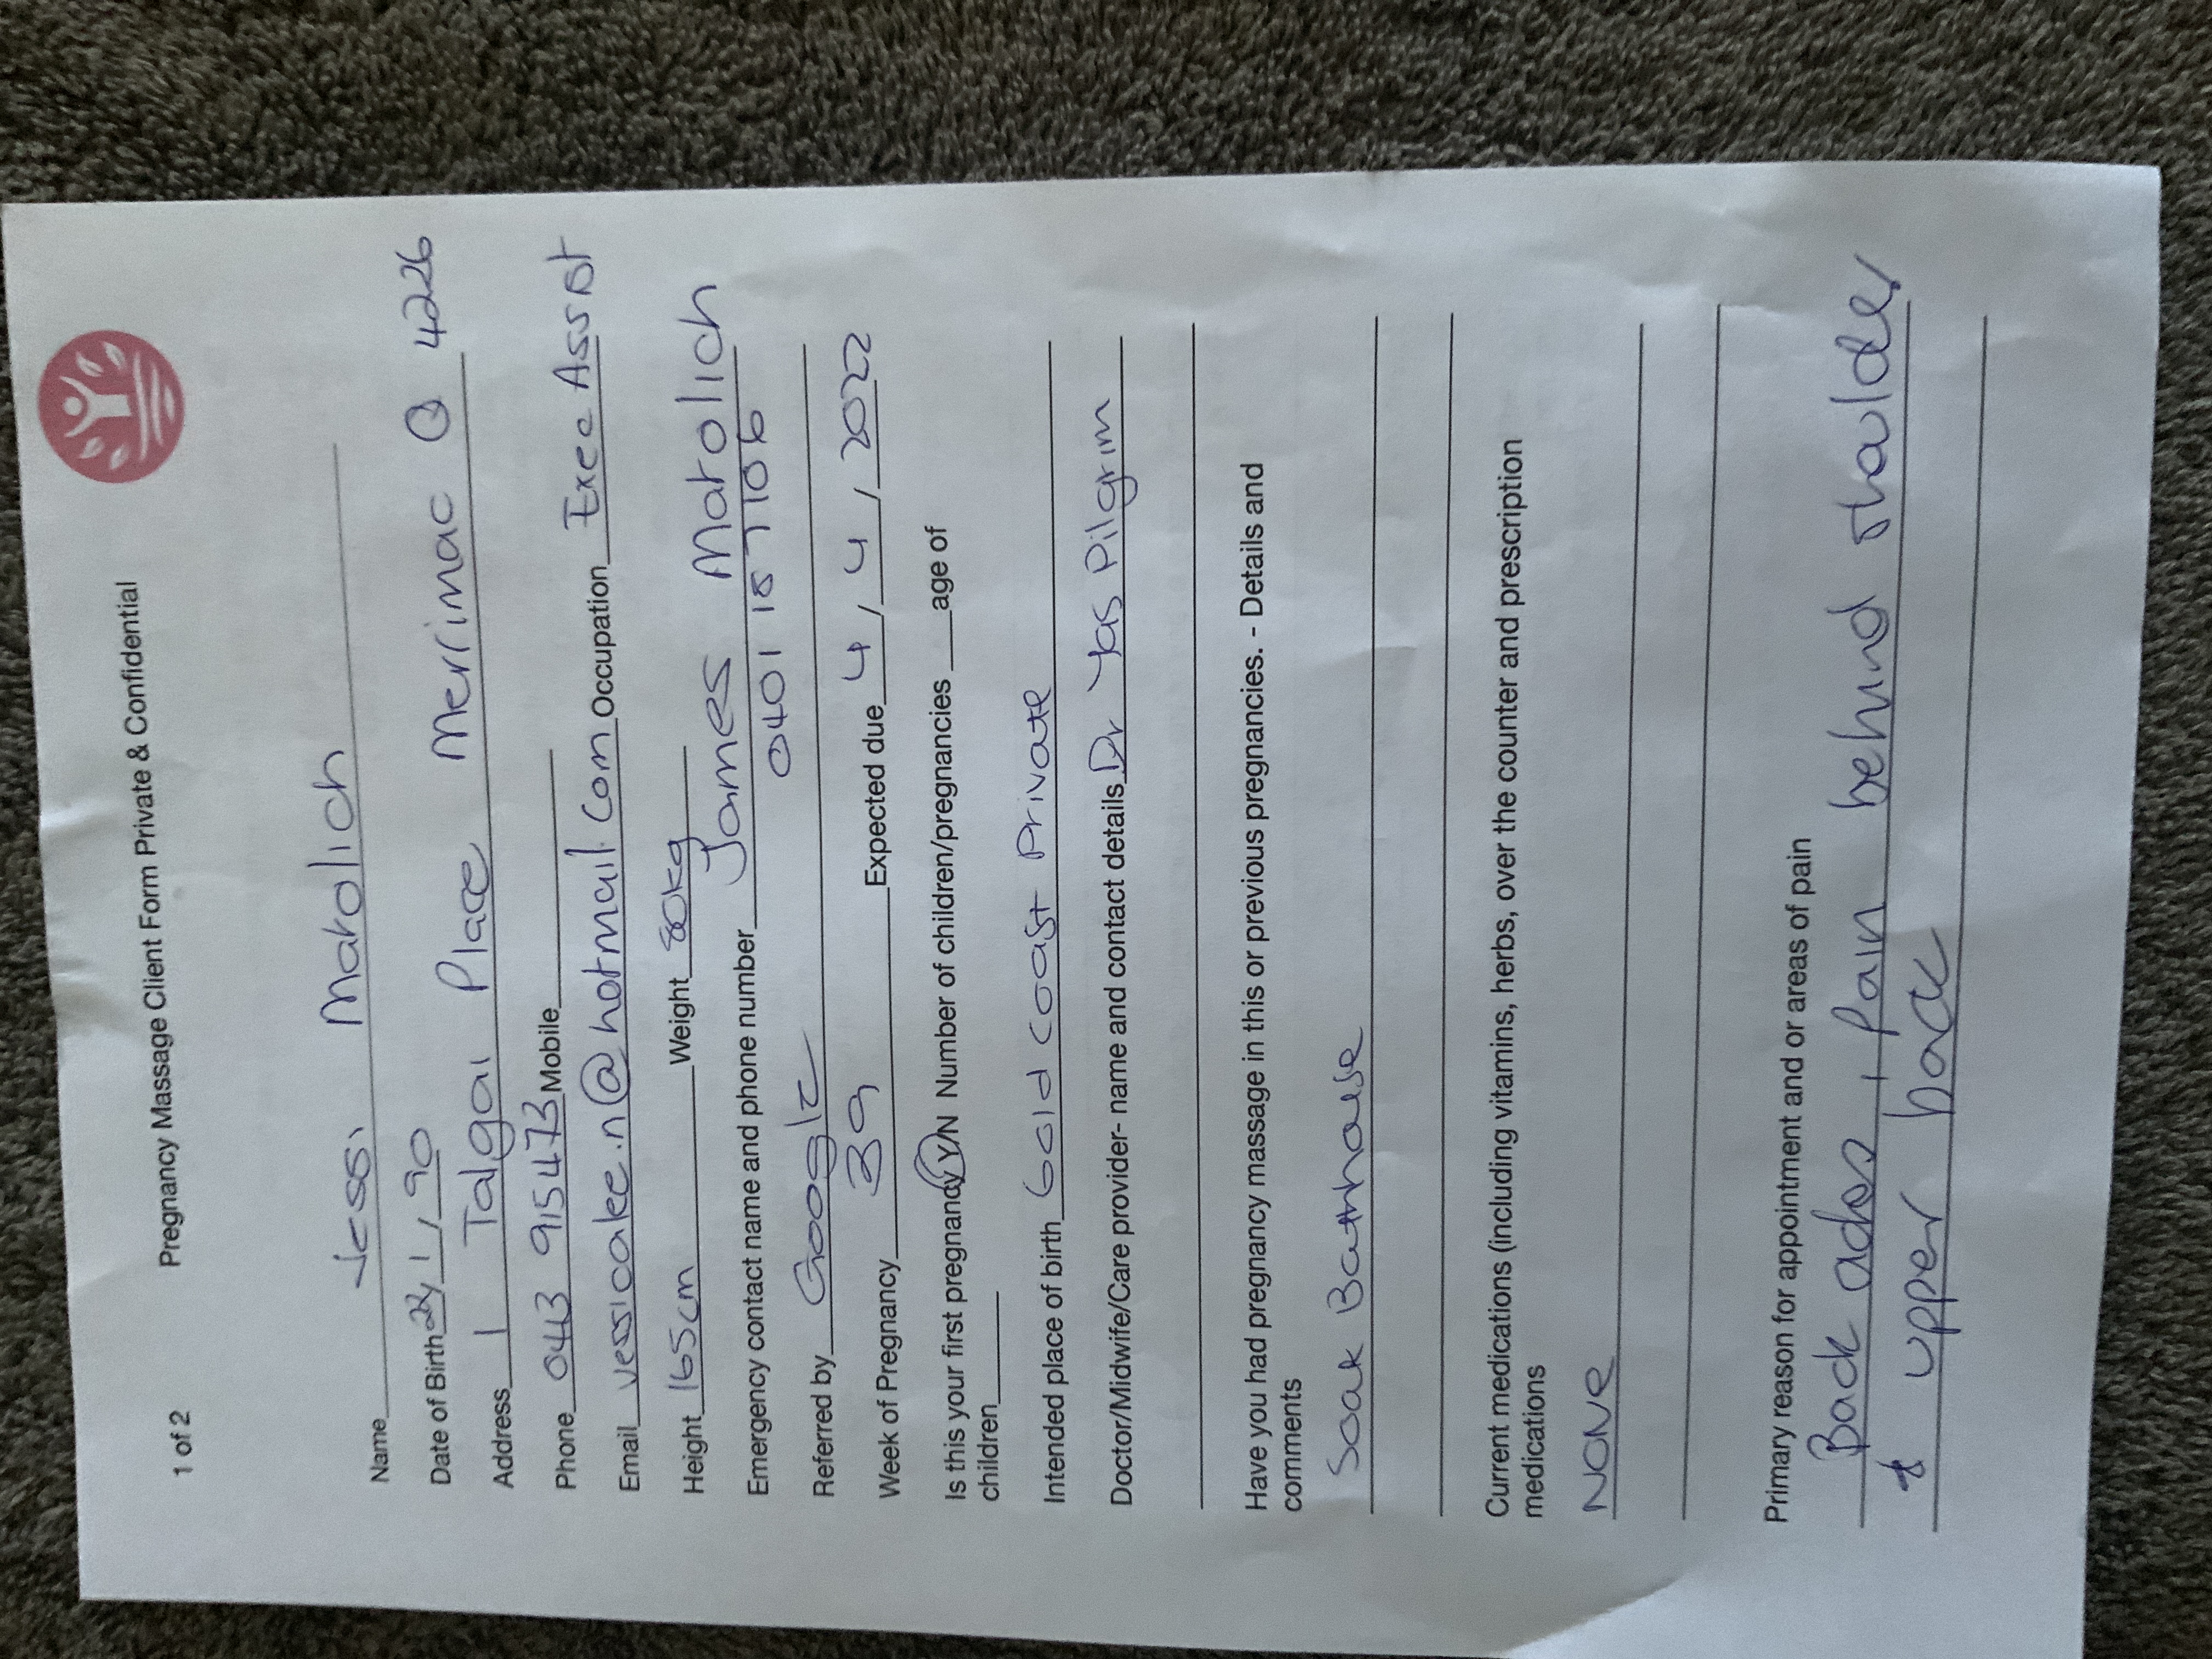 1 of 2 Pregnancy Massage Client Form Private & Confidential
Name Jess Matolich
Date of Birth 22/1/90
Address 1 Talgai Place Merrimac Q 4226
Phone 0413 915473 Mobile
Email jessicalee.n@hotmail.com Occupation Exec Assist
Height 165cm Weight 80kg
Emergency contact name and phone number James Matolich
0401 187 106
Referred by Google
Week of Pregnancy 39 Expected due 4/4/2022
Is this your first pregnancy Y/N Number of children/pregnancies ___age of
children
Intended place of birth Gold Coast Private
Doctor/Midwife/Care provider- name and contact details Dr Yas Pilgrim
Have you had pregnancy massage in this or previous pregnancies. - Details and
comments
Soak Bathhouse
Current medications (including vitamins, herbs, over the counter and prescription
medications
NONE
Primary reason for appointment and or areas of pain
Back aches, pain behind shoulder
+ upper back